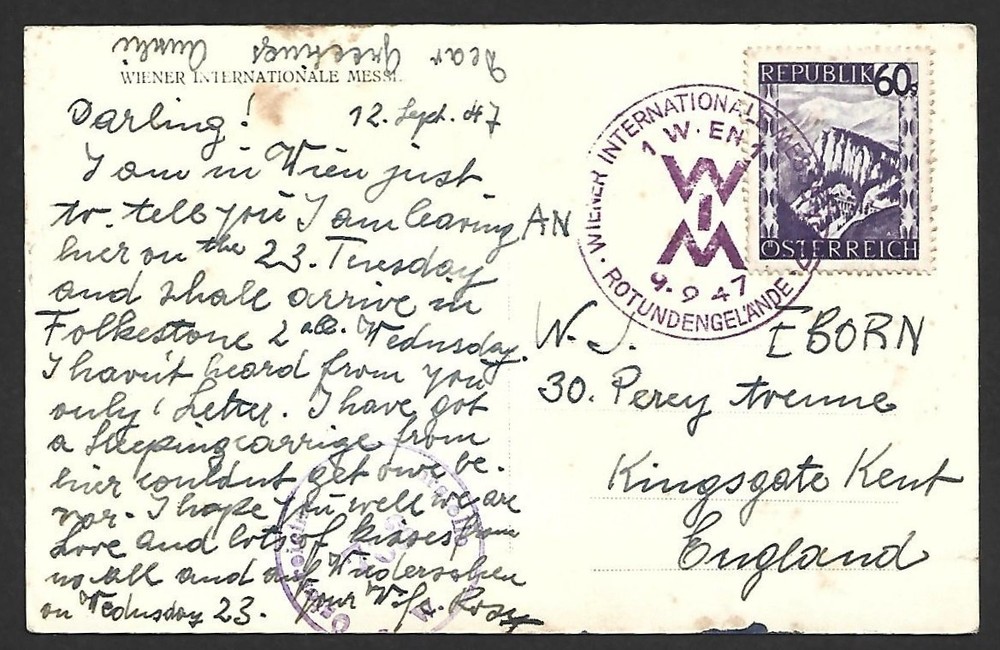 Dear Greetings
WIENER INTERNATIONALE MESSE.
Darling! 12. Sept. 47
I am in Wien just
to tell you I am leaving
hier on the 23. Tuesday
and shall arrive in
Folkestone 2 Wednusday.
I havn't heard from you
only 1 Letter. I have got
a sleepingcarrige from
hier couldnt get one be-
vor. I hope you well we are
Love and lots of kisses from
us all and auf Wiedersehen
on Wednusday 23. your Wife Rosy
AN
W. J. EBORN
30. Percy Avenue
Kingsgate Kent
England
WIENER INTERNATIONALE MESSE
1 W·EN 1
WIM
9.9 47
ROTUNDENGELÄNDE
REPUBLIK 60g
ÖSTERREICH